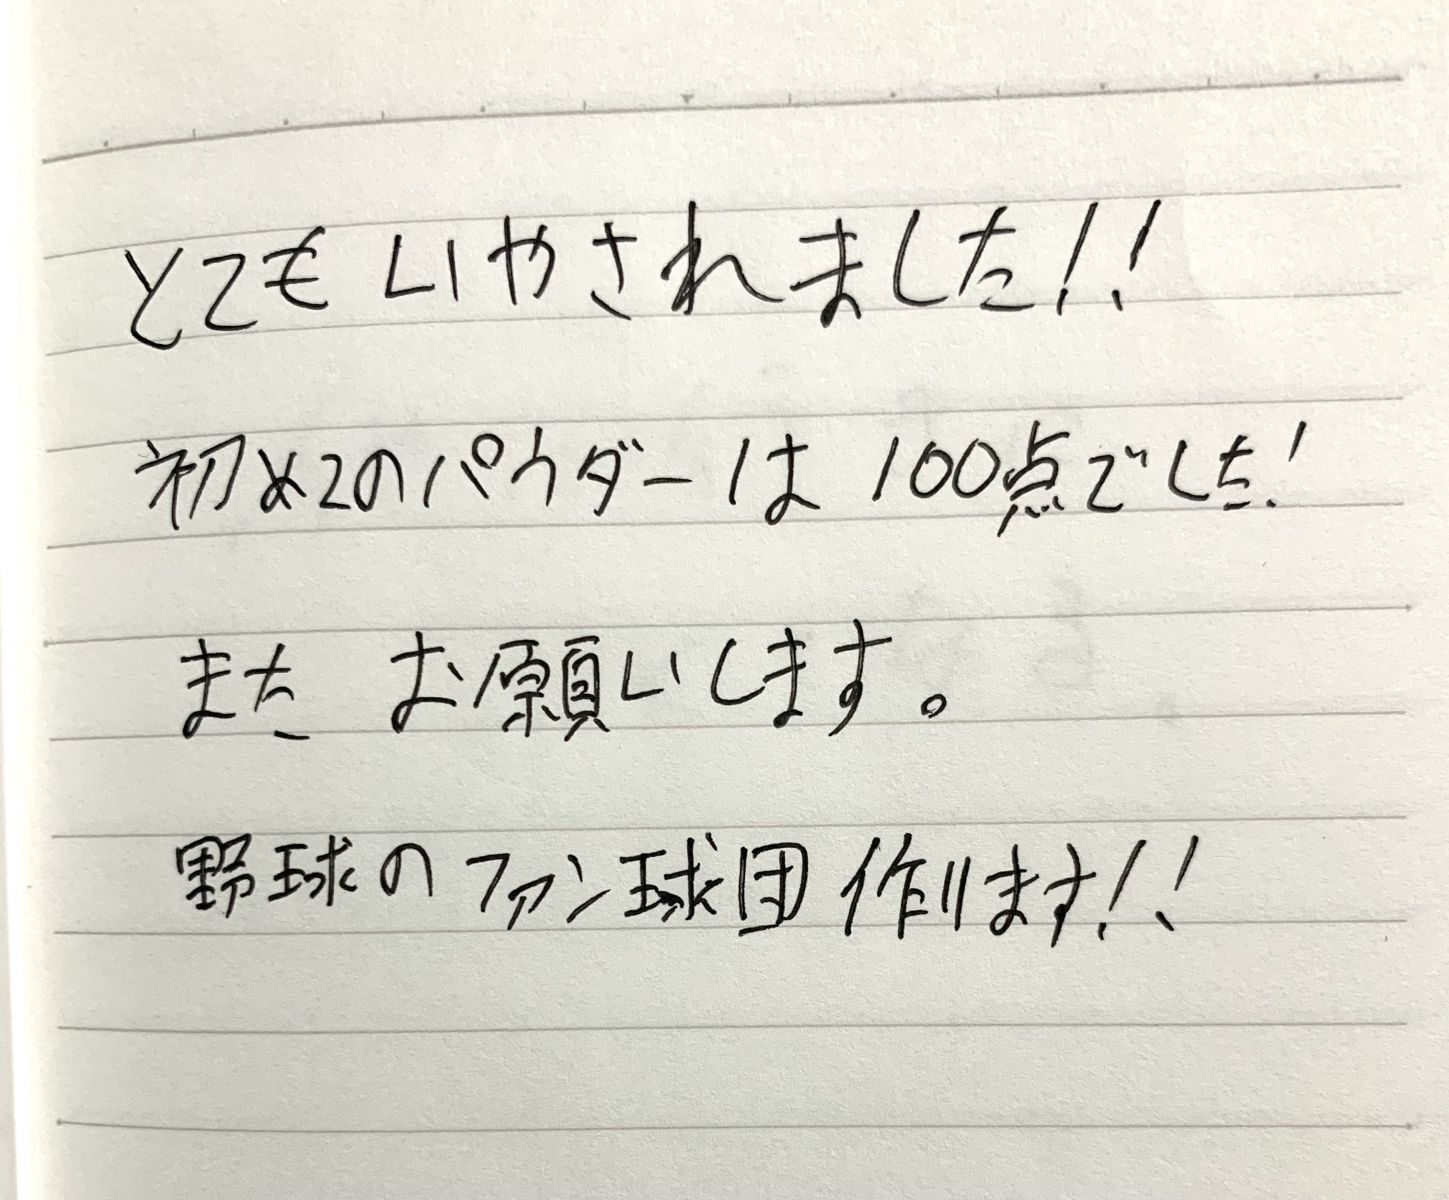 とてもいやされました!!
初めてのパウダーは100点でした!
また お願いします。
野球のファン球団作ります!!